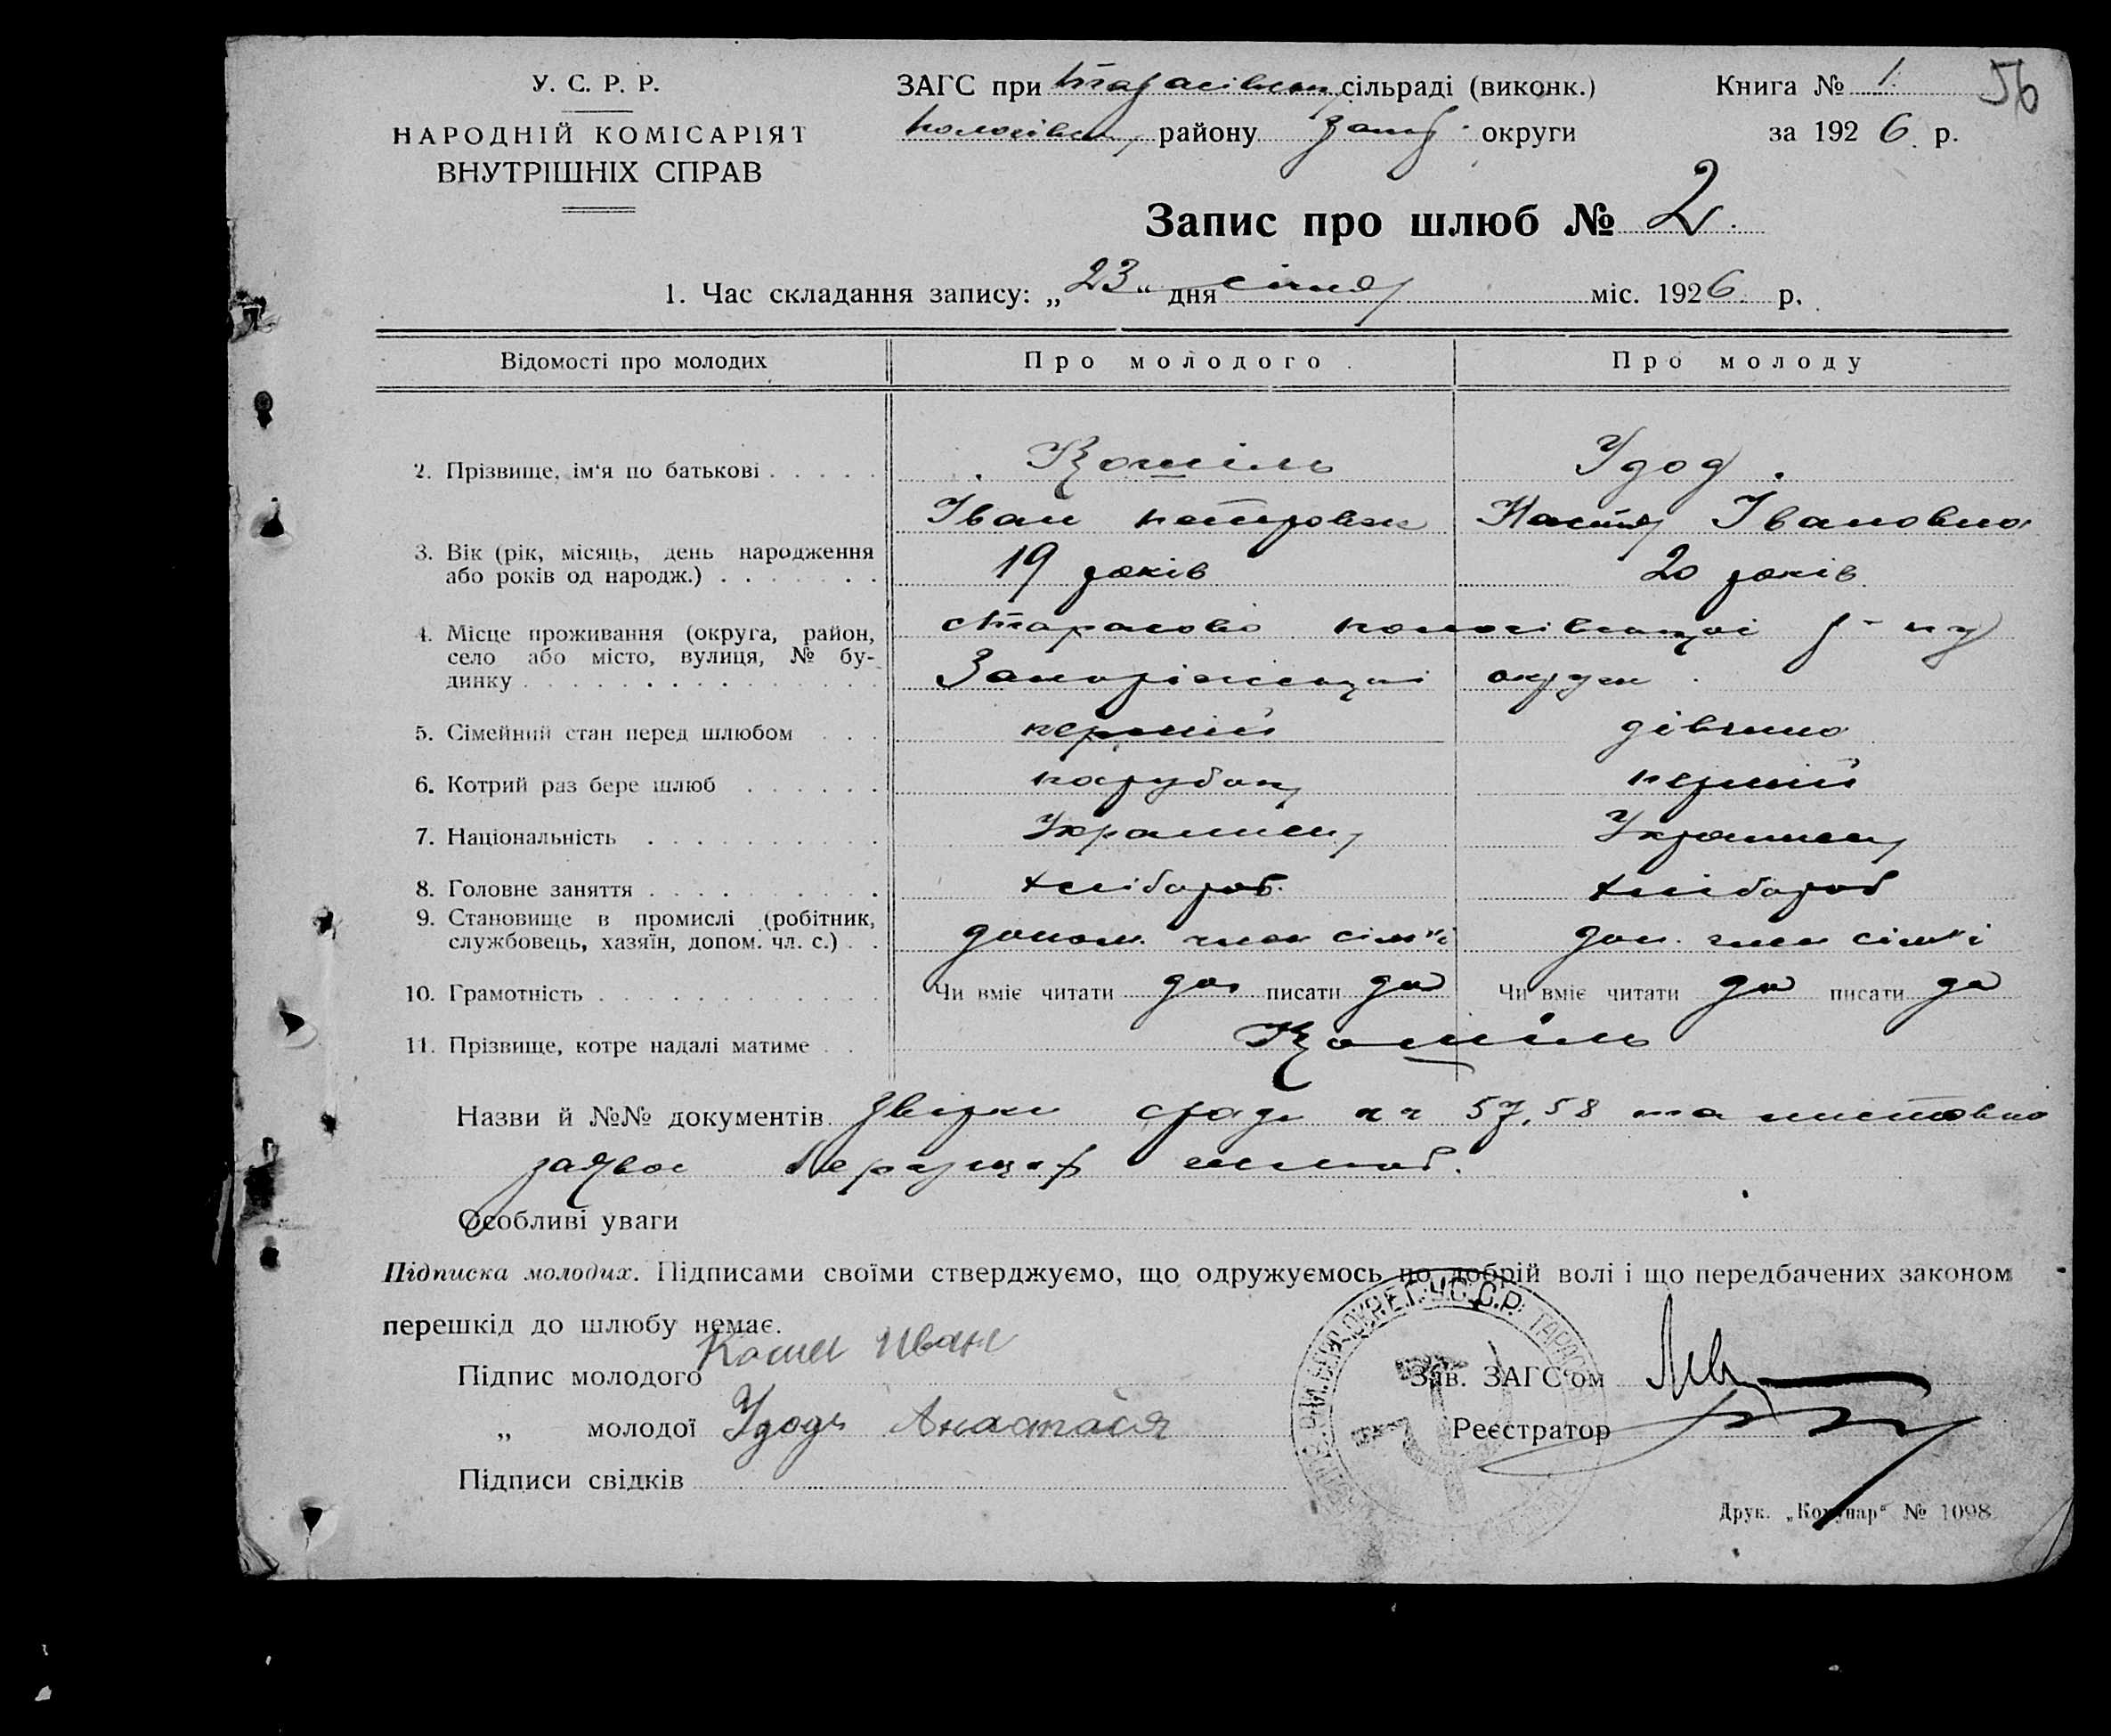 У. С. Р. Р.
НАРОДНІЙ КОМІСАРІЯТ
ВНУТРІШНІХ СПРАВ
ЗАГС при Тарасівськ сільраді (виконк.)
Пологівськ району Запор округи
Книга № 1.
за 1926 р.
56
Запис про шлюб № 2.
1. Час складання запису: „23“ дня січня міс. 1926 р.
Відомості про молодих Про молодого Про молоду
2. Прізвище, ім‘я по батькові Кошіль Удод
Іван Петрович Настя Івановна
3. Вік (рік, місяць, день народження
або років од народж.) 19 років 20 років
4. Місце проживання (округа, район,
село або місто, вулиця, № бу-
динку
с Тарасово Пологівської р-ну
Запоріжської округи
5. Сімейний стан перед шлюбом перший дівчина
6. Котрий раз бере шлюб парубок перший
7. Національність Українец Українец
8. Головне заняття хлібороб. хлібороб
9. Становище в промислі (робітник,
службовець, хазяїн, допом. чл. с.) допом. член сім'ї доп. член сім'ї
10. Грамотність Чи вміє читати да писати да Чи вміє читати да писати да
11. Прізвище, котре надалі матиме Кошіль
Назви й №№ документів 57, 58 та
заява шлюб.
Особливі уваги
Підписка молодих. Підписами своїми стверджуємо, що одружуємось по добрій волі і що передбачених законом
перешкід до шлюбу немає.
Підпис молодого Кошел Иван
„ молодої Удодъ Анастасія
Підписи свідків
Зав. ЗАГС‘ом
Реєстратор
Друк. „Комунар“ № 1098